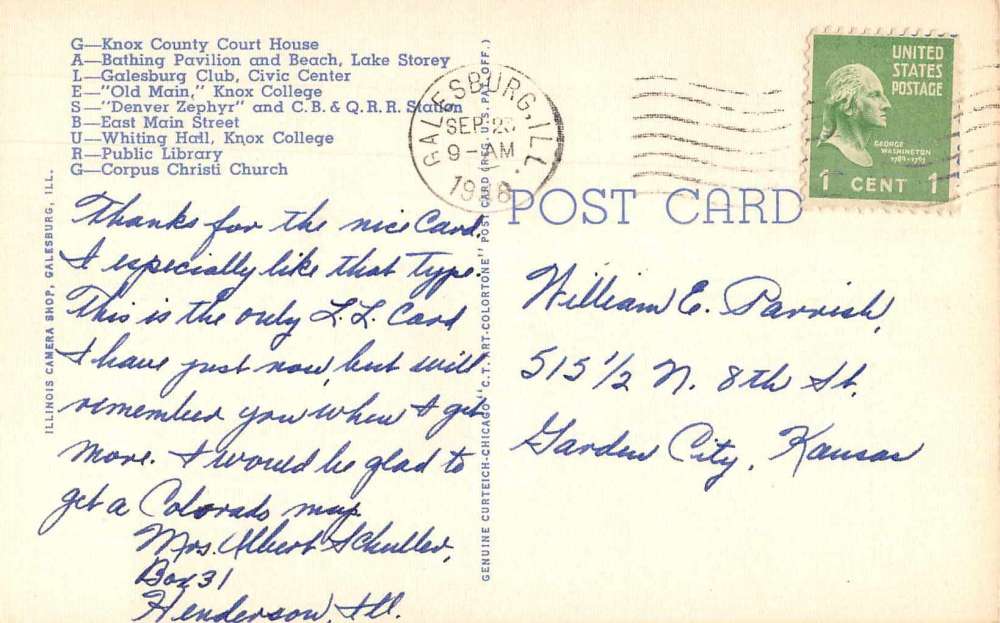 G—Knox County Court House
A—Bathing Pavilion and Beach, Lake Storey
L—Galesburg Club, Civic Center
E—"Old Main," Knox College
S—"Denver Zephyr" and C.B. & Q.R.R. Station
B—East Main Street
U—Whiting Hall, Knox College
R—Public Library
G—Corpus Christi Church
Thanks for the nice Card.
I especially like that type.
This is the only L.L. Card
I have just now, but will
remember you when I get
more. I would be glad to
get a Colorado map.
Mrs. Albert
Box 31
Henderson, Ill.
ILLINOIS CAMERA SHOP, GALESBURG, ILL.
GENUINE CURTEICH-CHICAGO "C.T. ART-COLORTONE" POST CARD (REG. U.S. PAT. OFF.)
GALESBURG, ILL.
SEP
9-AM
UNITED
STATES
POSTAGE
GEORGE
WASHINGTON
1789-1797
1 CENT 1
POST CARD
William E. Parrish,
515 1/2 N. 8th St.
Garden City, Kansas